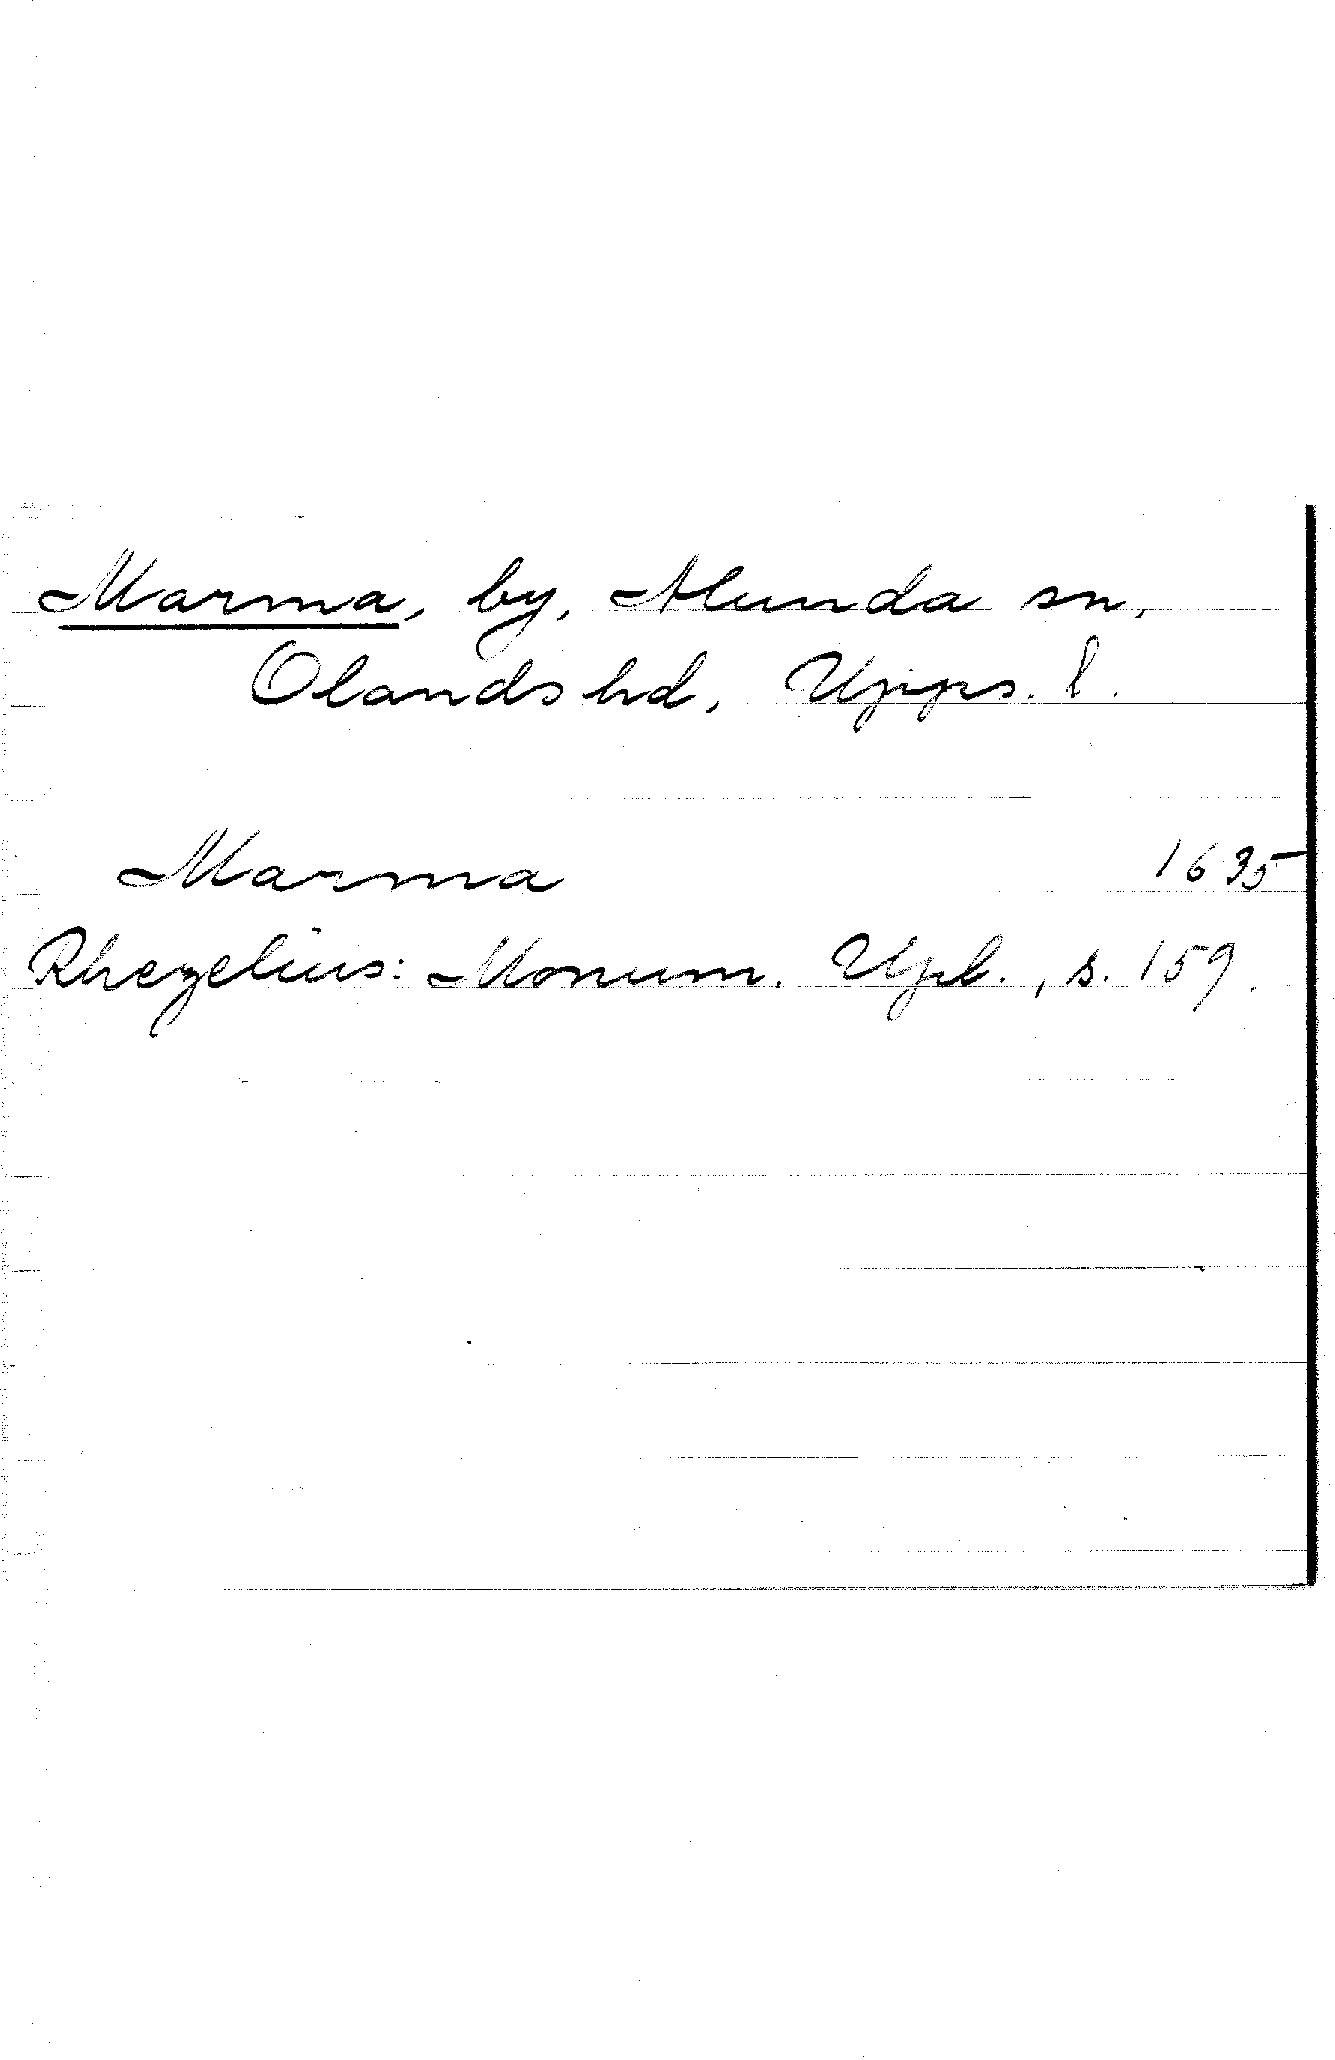 Marma, by, Alunda sn,
Olands hd, Upps. l.
Marma 1635
Rhezelius: Monum. Upl., s. 159.